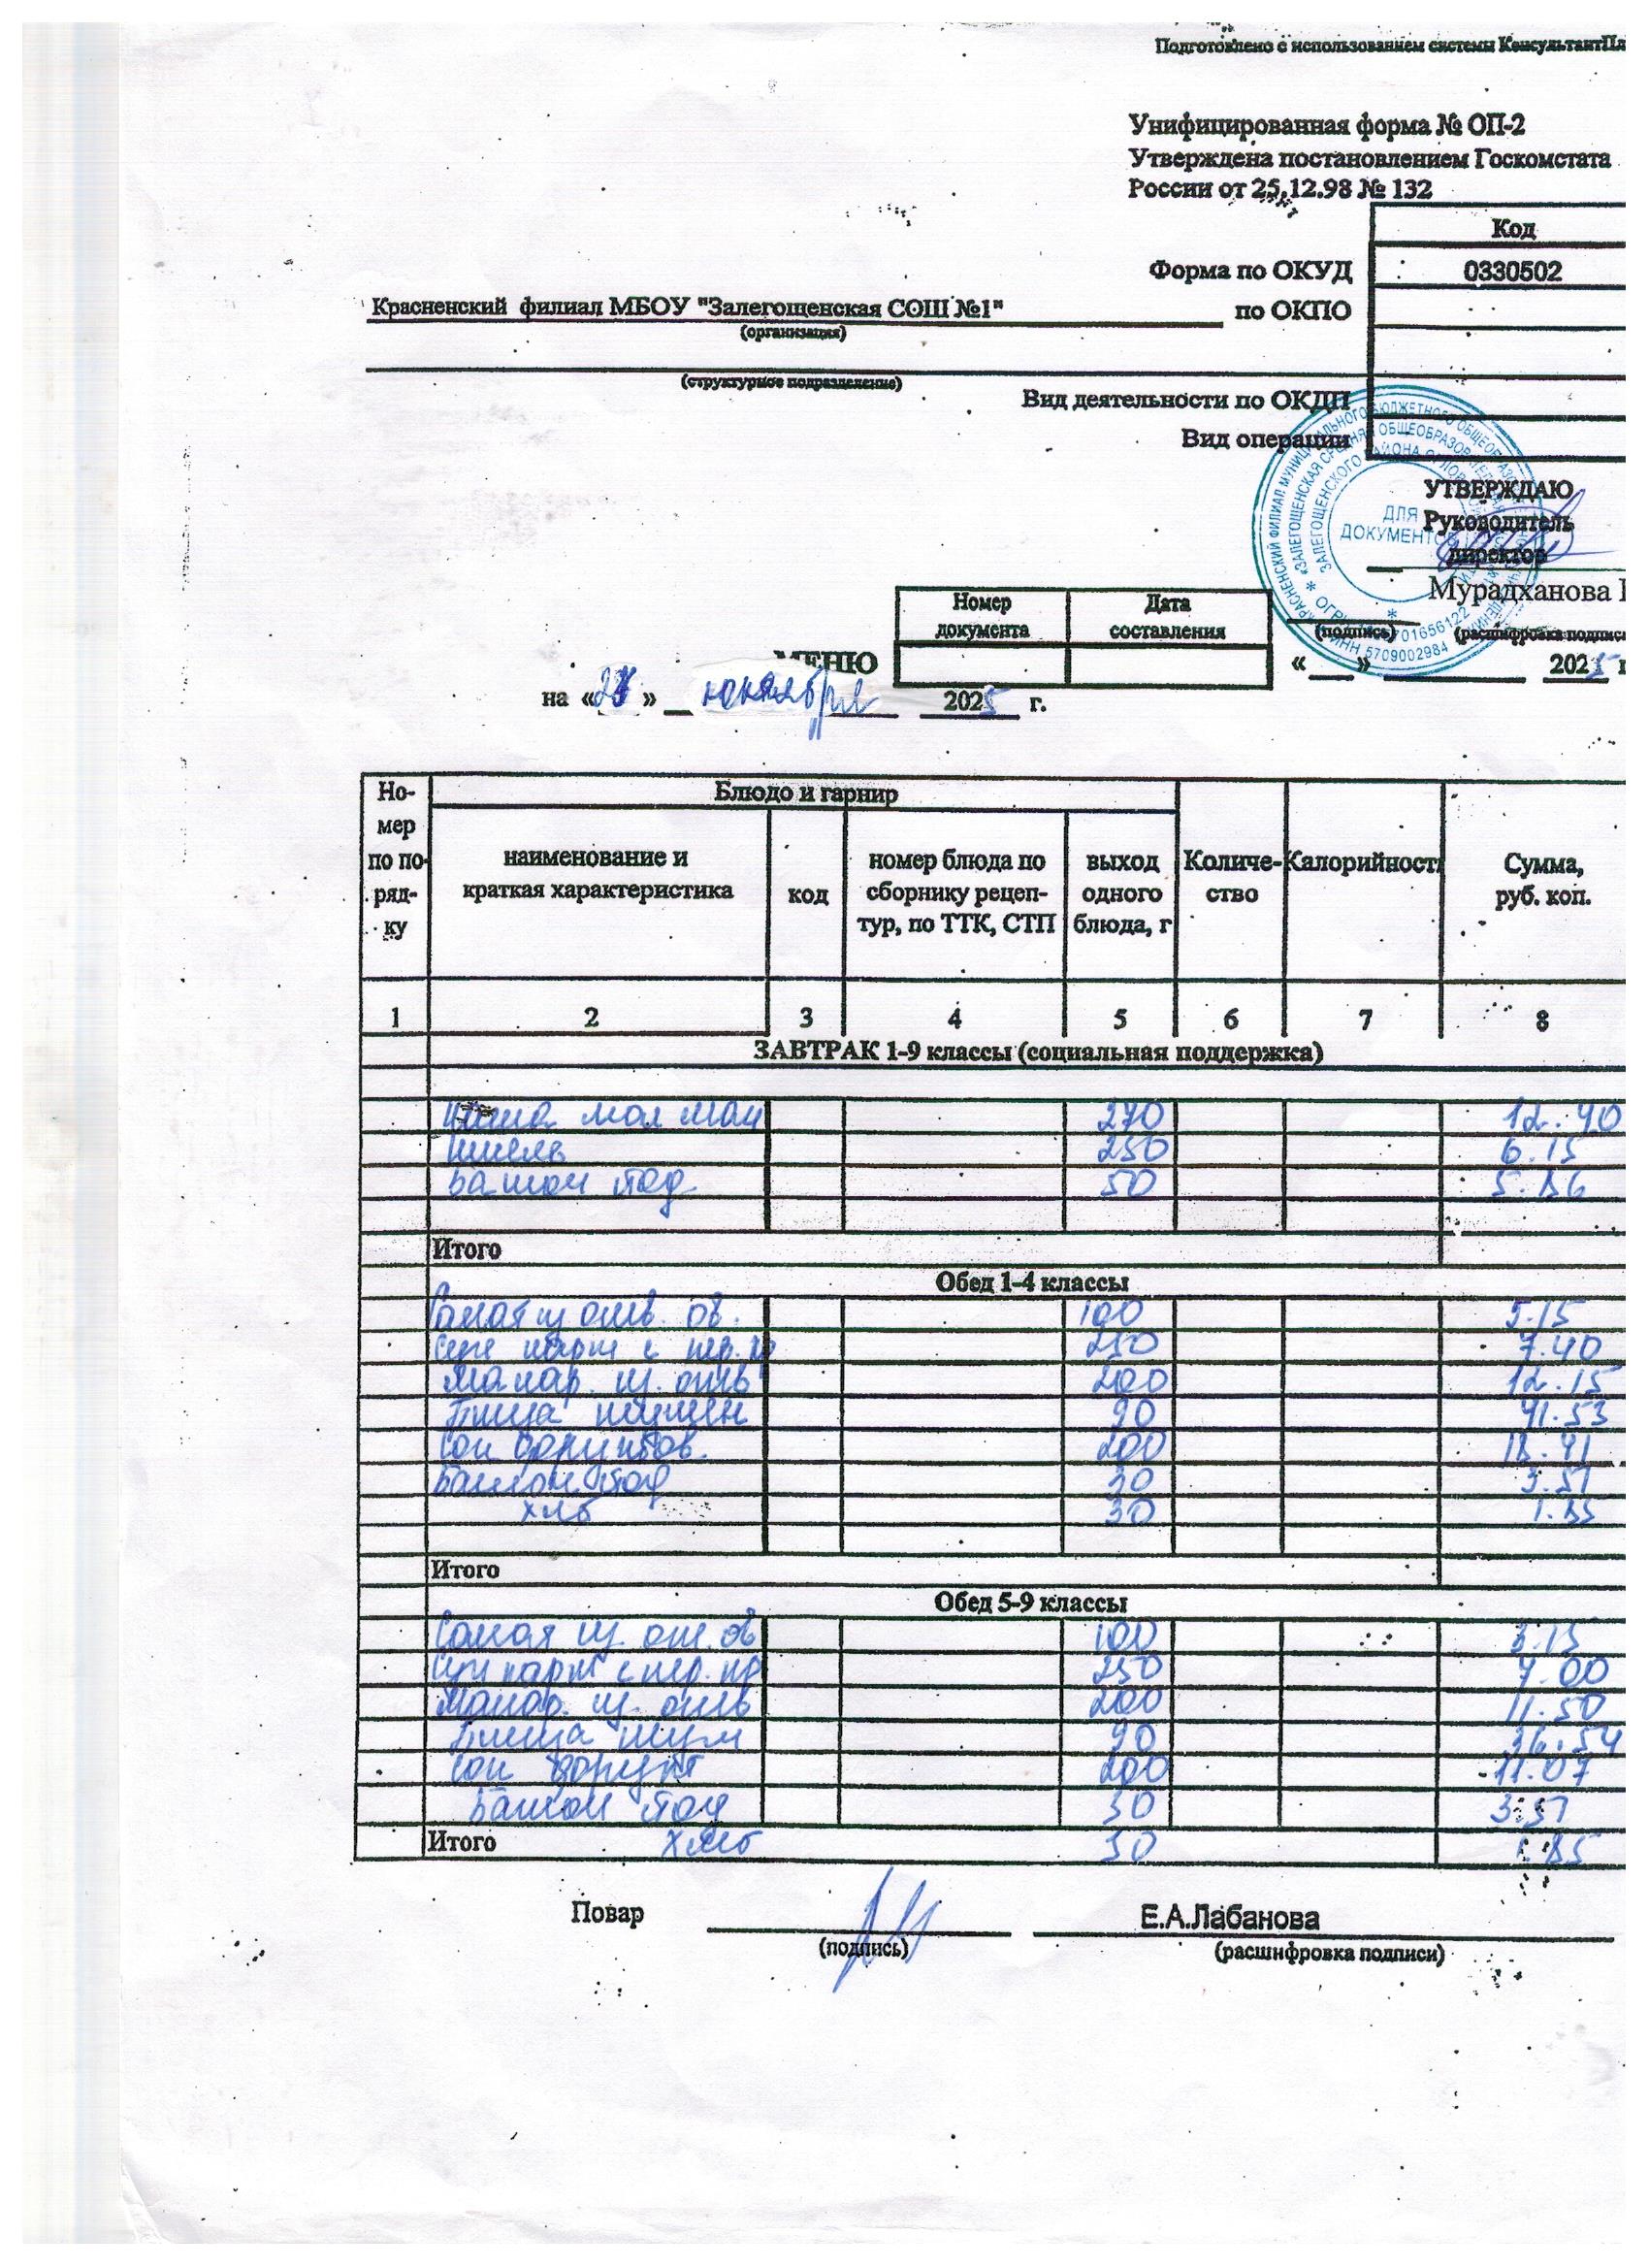 Подготовлено с использованием системы КонсультантПл
Унифицированная форма № ОП-2
Утверждена постановлением Госкомстата
России от 25.12.98 № 132
Код
Форма по ОКУД 0330502
Красненский филиал МБОУ "Залегощенская СОШ №1" по ОКПО
(организация)
(структурное подразделение)
Вид деятельности по ОКДП
Вид операции
УТВЕРЖДАЮ
Руководитель
директор
ДЛЯ
ДОКУМЕНТОВ
Мурадханова
Номер документа Дата составления
(подпись) (расшифровка подписи
МЕНЮ
« » 2025 г
на « » ноября 2025 г.
Но-мер по по-ряд-ку
Блюдо и гарнир
наименование и краткая характеристика
код
номер блюда по сборнику рецеп-тур, по ТТК, СТП
выход одного блюда, г
Количе-ство
Калорийность
Сумма, руб. коп.
1 2 3 4 5 6 7 8
ЗАВТРАК 1-9 классы (социальная поддержка)
каша мол ман 270 12.90
кисель 250 6.15
батон йод 50 5.86
Итого
Обед 1-4 классы
Салат из ов. 100 5.15
Суп карт с 250 7.40
Макар. из. отв 200 12.15
Птица тушен 90 41.53
Сок фруктов. 200 18.41
Батон йод 30 3.51
хлеб 30 1.85
Итого
Обед 5-9 классы
Салат из ов 100 3.15
Суп карт с 250 7.00
Макар. из. отв 200 11.50
Птица туш 90 36.54
Сок фрукт 200 11.07
Батон йод 30 3.51
Итого хлеб 30 1.85
Повар Е.А.Лабанова
(подпись) (расшифровка подписи)